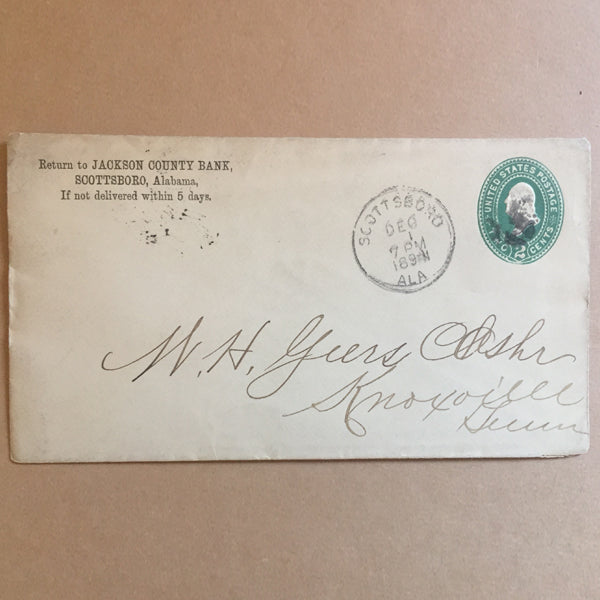 Return to JACKSON COUNTY BANK,
SCOTTSBORO, Alabama,
If not delivered within 5 days.
SCOTTSBORO
DEC
1
7 PM
1894
ALA
UNITED STATES POSTAGE
2 CENTS
W. H. Geers Cashr
Knoxville
Tenn